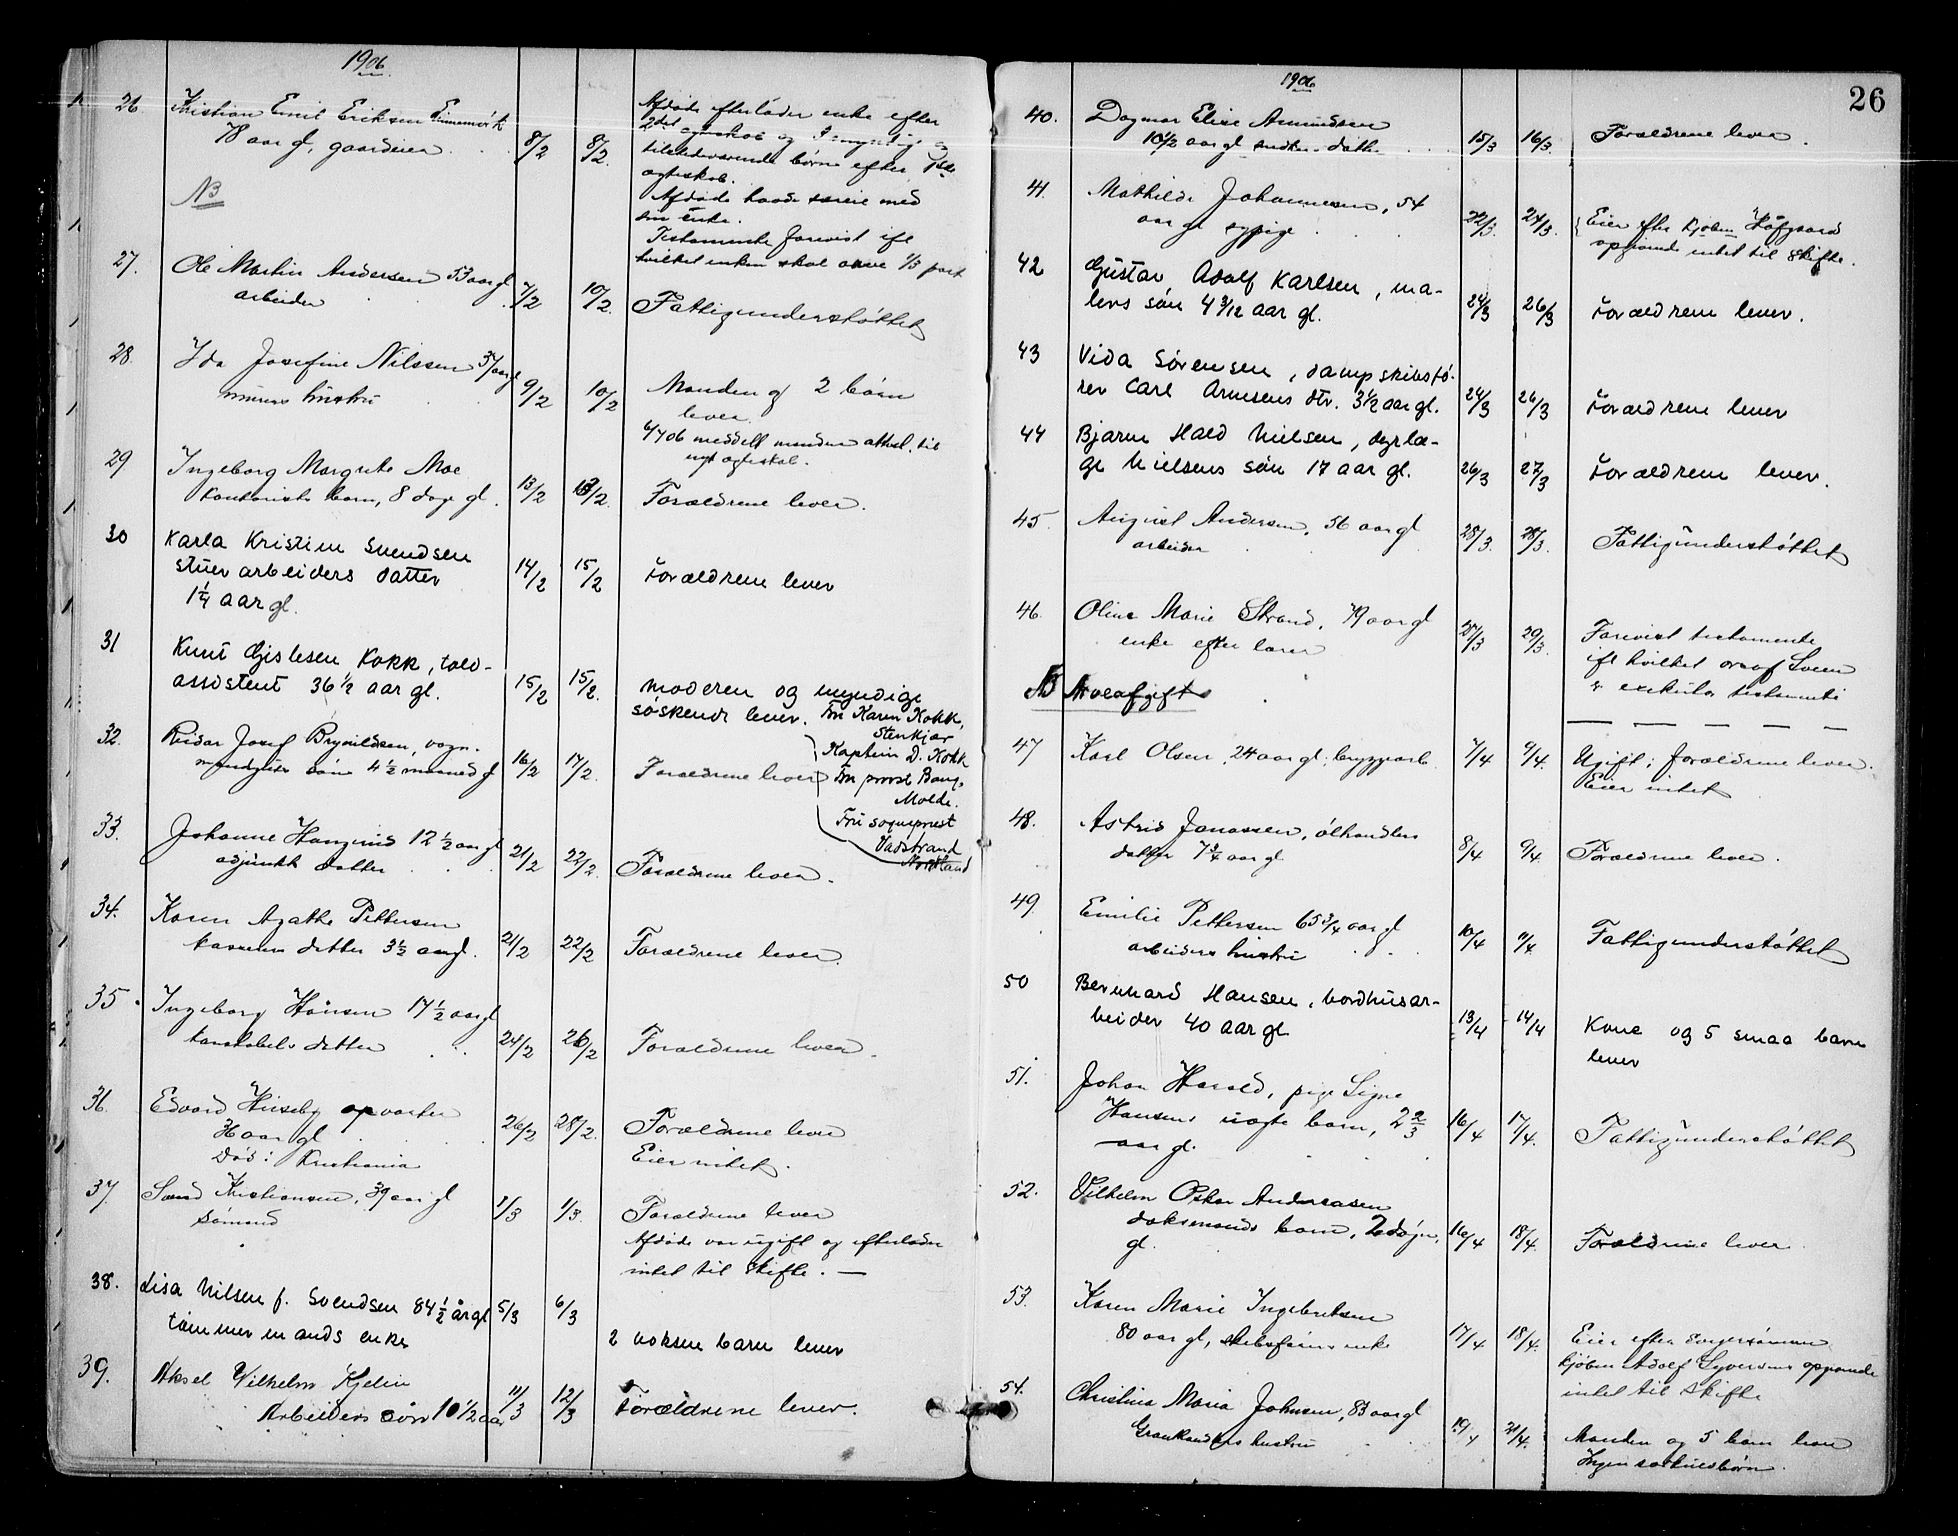 1906
26. Kristian Emil Eriksen
78 aar gl. gaardeier 8/2 8/2.
Afdøde efterlader enke efter
2det ægteskab og myndige og
tilstedeværende børn efter 1ste
ægteskab.
NB
Afdøde havde særeie med
sin enke.
Testamente forevist ifl
hvilket enken skal arve 1/3 part
27. Ole Martin Andersen 53 aar gl
arbeider 7/2 10/2. Fattigunderstøttet
28. Ida Josefine Nilssen 37 aar gl
murers hustru 9/2 10/2 Manden og 2 børn
lever
6/4 06 meddelt manden attest til
nyt ægteskab.
29 Ingeborg Margrete Moe
kontorists barn, 8 dage gl. 13/2 13/2. Forældrene lever.
30 Karla Kristine Svendsen
stuerarbeiders datter 14/2 15/2 Forældrene lever
1 1/4 aar gl.
31 Knut Gislesen Kokk, told-
assistent 36 1/2 aar gl. 15/2 15/2. Moderen og myndige
søskende lever. Fru Karen Kokk,
Stenkjær
Kaptein D. Kokk
Fru provst Bang,
Molde.
Fru sogneprest
Vadstrand
Nordland
32. Reidar Josef Brynildsen, vogn-
mands søn 4 1/2 maaned gl 16/2 17/2. Forældrene lever
33. Johanne 12 1/2 aar gl
adjunkt datter 21/2 22/2. Forældrene lever.
34. Karen Agathe Pettersen
datter 3 1/2 aar gl. 21/2 22/2 Forældrene lever.
35. Ingeborg Hansen 17 1/2 aar gl
konstabels datter 24/2 26/2 Forældrene lever.
36. Edvard Huseby opvarter
aar gl 26/2 28/2. Forældrene lever
Død i Kristiania Eier intet.
37. Kristiansen, 39 aar gl
sømand 1/3 1/3. Forældrene lever
Afdøde var ugift og efterlader
intet til skifte. —
38. Lisa Nilsen f. Svendsen 84 1/2 år gl 5/3 6/3
tømmermands enke 2 voksne barn lever
39. Aksel Vilhelm Kjelin
Arbeiders søn 10 1/2 aar 11/3 12/3 Forældrene lever.
26
1906
40. Dagmar Elise Amundsen
10 1/2 aar gl datter 15/3 16/3. Forældrene lever.
41. Mathilde Johannesen, 54
aar gl sypige 22/3. 24/3. Eier efter kjøbm Hofgaard
opgivende intet til skifte.
42 Gustav Adolf Karlsen, ma-
lers søn 4 3/12 aar gl. 24/3 26/3 Forældrene lever.
43 Vida Sørensen, dampskibsfø-
rer Carl Arnesens dtr. 3 1/2 aar gl. 24/3 26/3 Forældrene lever
44 Bjarne Hald Nielsen, dyrlæ-
ge Nielsens søn 17 aar gl. 26/3 27/3 Forældrene lever.
45. August Andersen, 56 aar gl
arbeider 28/3. 28/3. Fattigunderstøttet
46. Oline Marie Strand, 79 aar gl
enke efter 27/3 29/3. Forevist testamente
ifl hvilket
testamente
NB Arveafgift
47 Karl Olsen, 24 aar gl, bryggearb. 7/4 9/4. Ugift; forældrene lever.
Eier intet
48. Astrid Jonassen, ølhandlers
datter 7 3/4 aar gl 8/4 9/4. Forældrene lever.
49. Emilie Pettersen 65 3/4 aar gl
arbeiders hustru 10/4 11/4. Fattigunderstøttet
50 Bernhard Hansen, bordhusar-
beider 40 aar gl 13/4 14/4 Kone og 5 smaa barn
lever
51. Johan Harald, pige Signe
Hansens uægte barn, 2 2/3 16/4 17/4. Fattigunderstøttet
aar gl.
52. Vilhelm Oskar Andreasen
doksmands barn, 2 døgn 16/4 18/4. Forældrene lever.
gl.
53. Karen Marie Ingebretsen
80 aar gl, skibsførers enke 17/4 18/4. Eier efter svigersønnen
kjøbm Adolf Syversens opgivende
intet til skifte
54. Christine Maria Johnsen, 83 aar gl
hustru 19/4 21/4. Manden og 5 barn lever
Ingen særkuldsbørn.